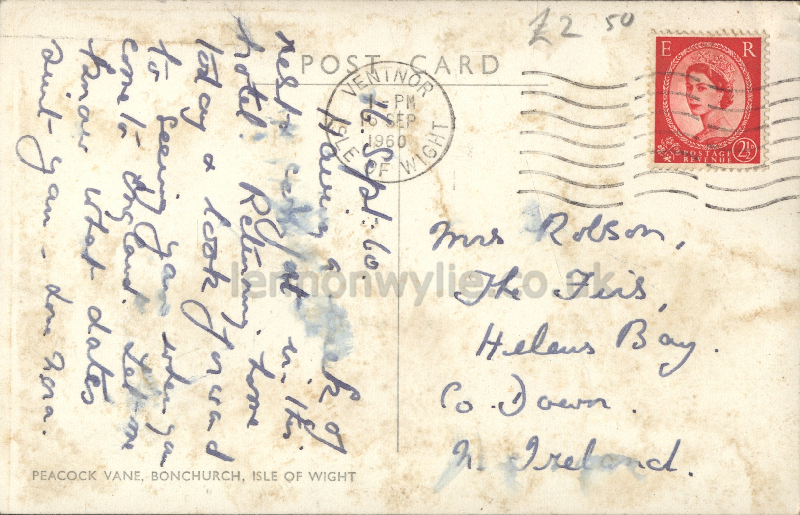 £2 50
POST CARD
E R
POSTAGE
REVENUE
2½
VENTNOR
PM
SEP
1960
ISLE OF WIGHT
Sept. 60.
Having a week of
rest &
hotel. Returning home
today & look forward
to seeing you when you
come to England. Let me
know what dates
suit you - love Nora.
Mrs Robson,
The Firs,
Helens Bay.
Co. Down.
N. Ireland.
lennonwylie.co.uk
PEACOCK VANE, BONCHURCH, ISLE OF WIGHT